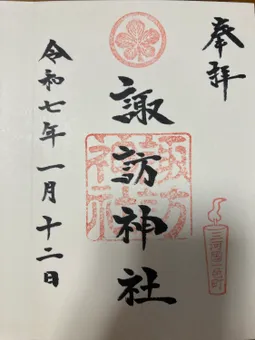 奉拝
諏訪神社
諏訪神社
三河国一色町
令和七年一月十二日